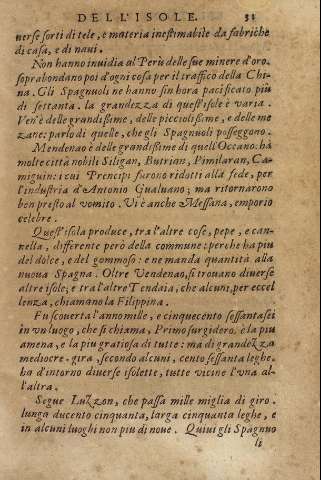 DELL'ISOLE. 31
uerse sorti di tele, e materia inestimabile da fabriche
di casa, e di naui.
Non hanno inuidia al Perù delle sue minere d'oro.
soprabondano poi d'ogni cosa per il traffico della Chi-
na. Gli Spagnuoli ne hanno sin hora pacificato più
di settanta. la grandezza di quest'isole è varia.
Ven'è delle grandissime, delle picciolissime, e delle me
zane: parlo di quelle, che gli Spagnuoli posseggono.
Mendenao è delle grandissime di quell'Oceano. ha
molte città nobili Siligan, Butrian, Pimilaran, Ca-
miguin: i cui Prencipi furono ridotti alla fede, per
l'industria d'Antonio Galuano; ma ritornarono
ben presto al vomito. Vi è anche Messana, emporio
celebre.
Quest'isola produce, tra l'altre cose, pepe, e can-
nella, differente però della commune: perche ha piu
del dolce, e del gommoso: e ne manda quantità alla
nuova Spagna. Oltre Vendenao, si trouano diuerse
altre isole; e tra l'altre Tendaia, che alcuni, per eccel
lenza, chiamano la Filippina.
Fu scouerta l'anno mille, e cinquecento sessantasei
in vn luogo, che si chiama, Primo surgidero. è la piu
amena, e la piu gratiosa di tutte: ma di grandezza
mediocre. gira, secondo alcuni, cento sessanta leghe.
ha d'intorno diuerse isolette, tutte vicine l'vna al-
l'altra.
Segue Luzzon, che passa mille miglia di giro.
lunga ducento cinquanta, larga cinquanta leghe, e
in alcuni luoghi non piu di noue. Quiui gli Spagnuo
li